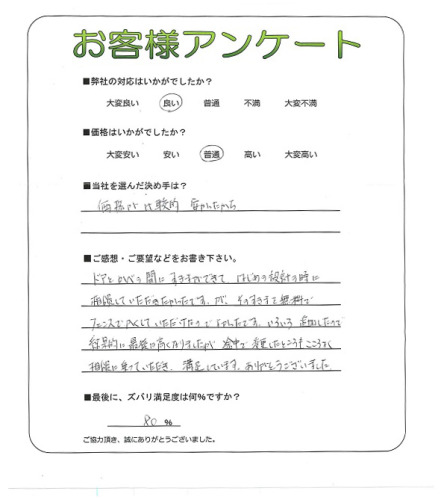 お客様アンケート
■弊社の対応はいかがでしたか？
大変良い 良い 普通 不満 大変不満
■価格はいかがでしたか？
大変安い 安い 普通 高い 大変高い
■当社を選んだ決め手は？
価格が比較的 安かったから
■ご感想・ご要望などをお書き下さい。
ドアと の間に すきまができて はじめの設計の時に
相談していただきたかったです。が、そのすきまを無料で
フェンスで していただけたので よかったです。いろいろ 追加したので
結果的に 高くなりましたが 途中で 変更したところも こころよく
相談に乗っていただき、満足しています。ありがとうございました
■最後に、ズバリ満足度は何％ですか？
80 ％
ご協力頂き、誠にありがとうございました。